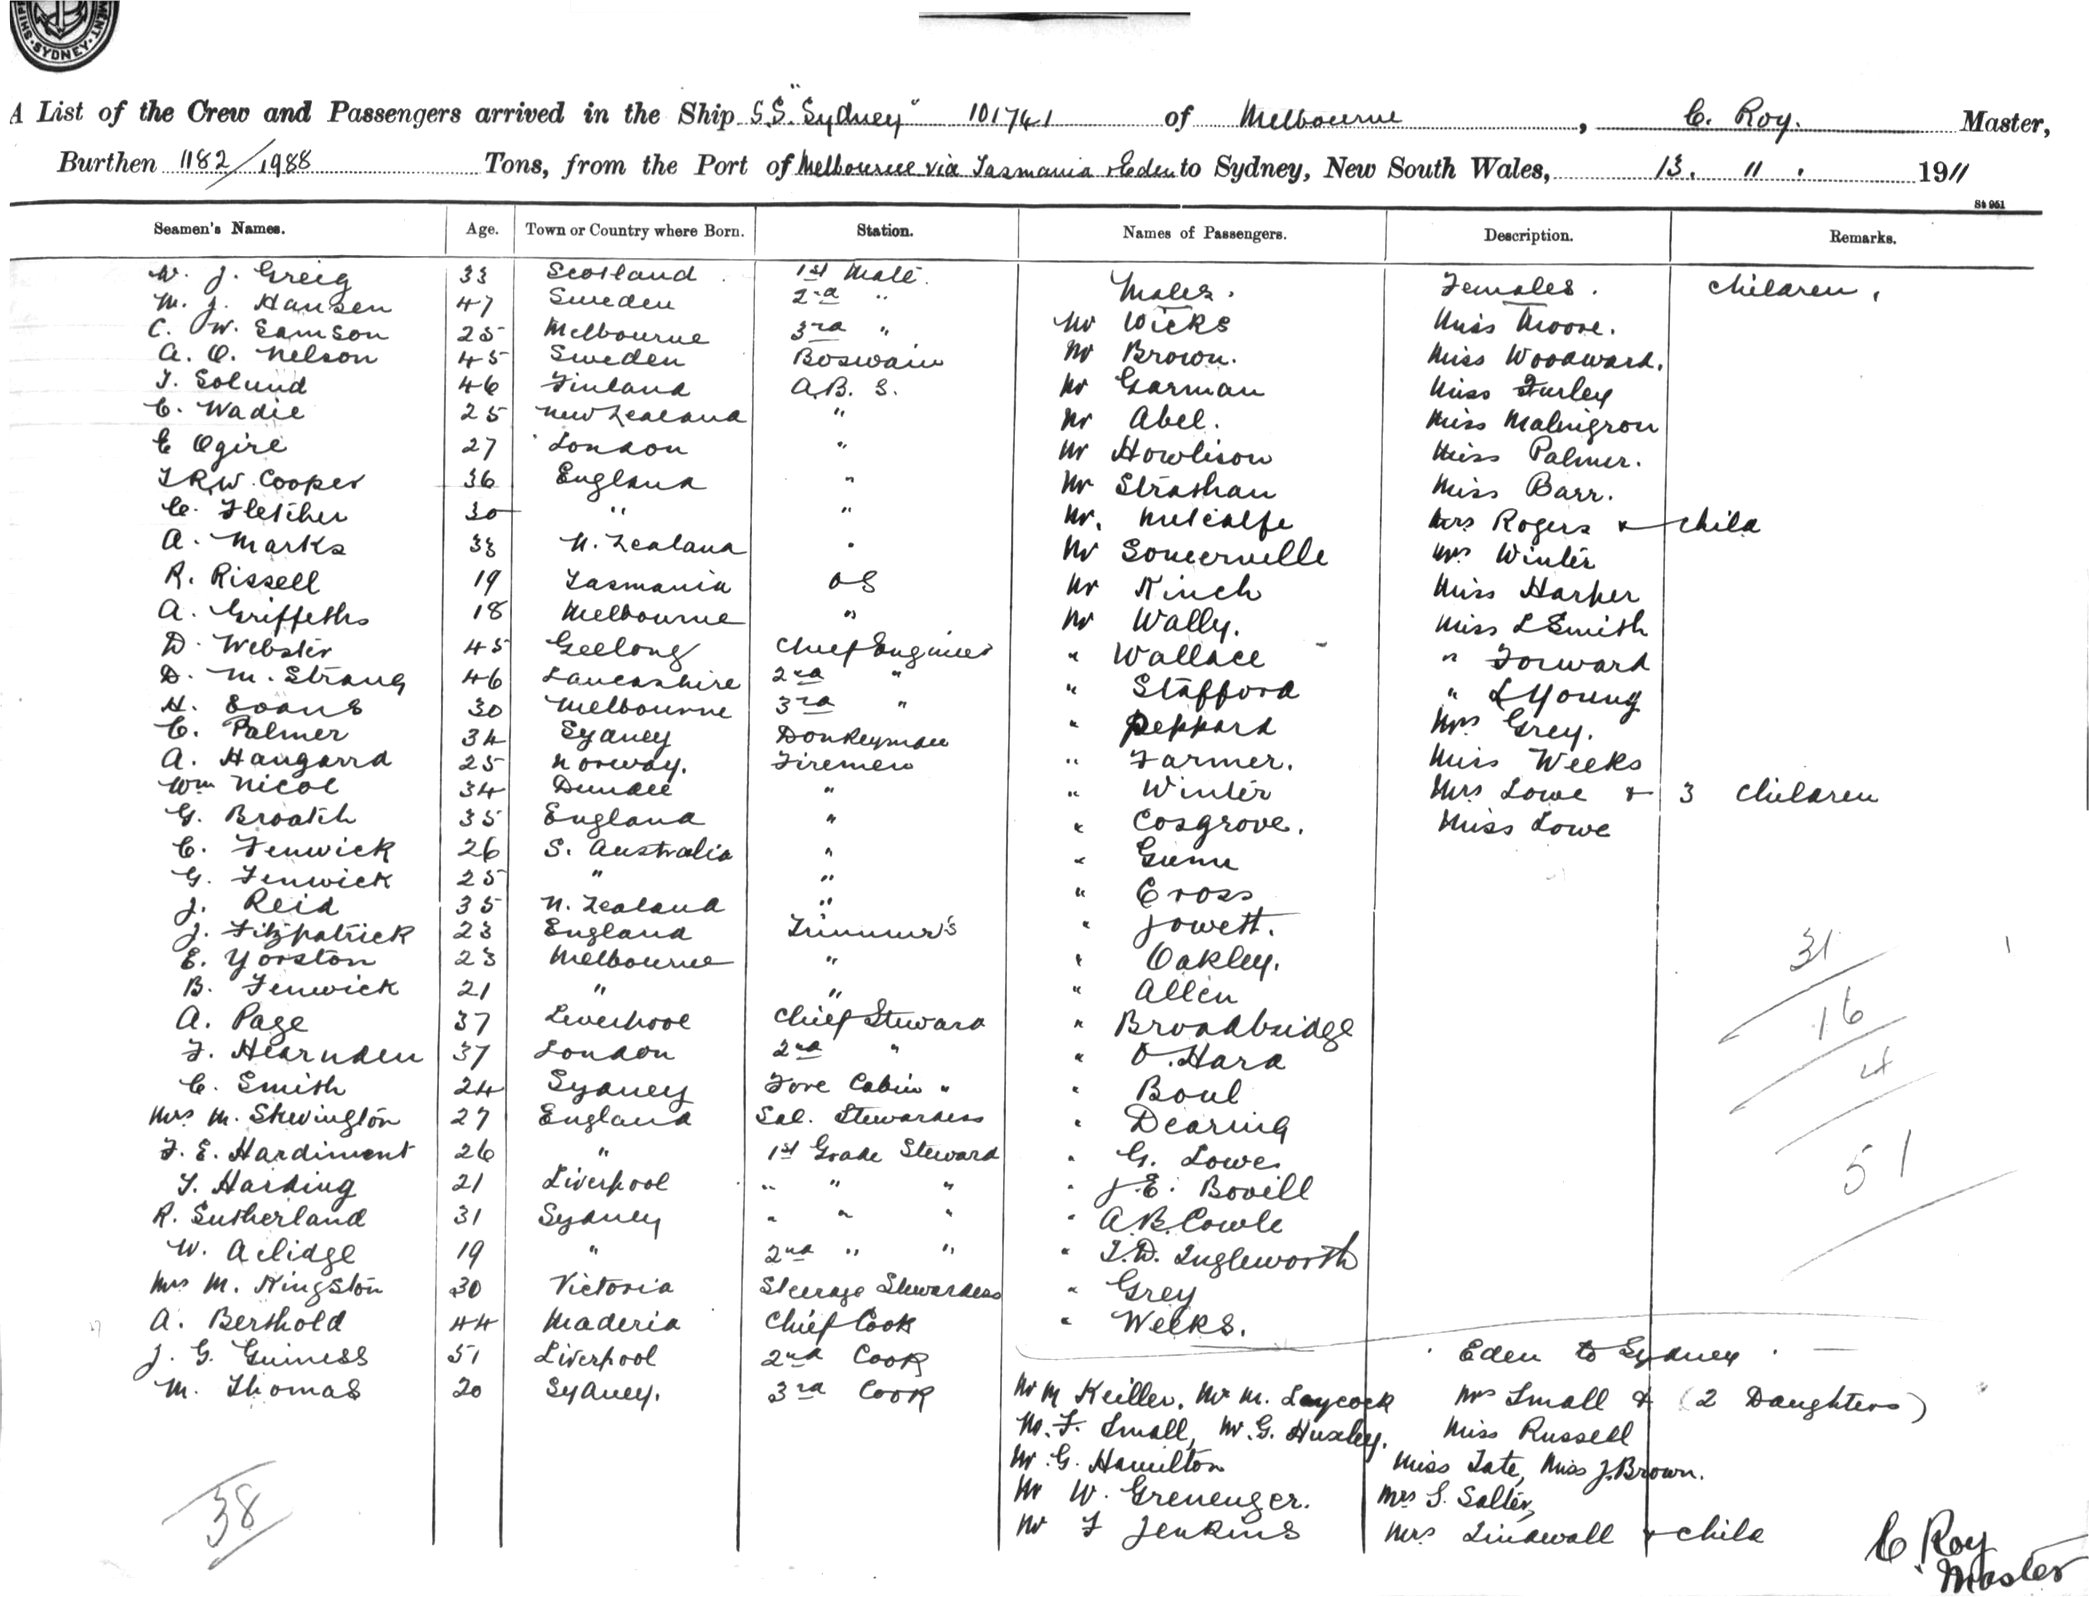 SYDNEY
A List of the Crew and Passengers arrived in the Ship S.S. "Sydney" 101741 of Melbourne, C. Roy. Master,
Burthen 1182/1988 Tons, from the Port of Melbourne via Tasmania & Eden to Sydney, New South Wales, 13. 11. 1911
St 951
Seamen's Names. Age. Town or Country where Born. Station. Names of Passengers. Description. Remarks.
W. J. Greig 33 Scotland 1st Mate. Males. Females. Children.
M. J. Hansen 47 Sweden 2nd "
C. W. Samson 25 Melbourne 3rd " Mr Wicks Miss Moore.
A. O. Nelson 45 Sweden Boswain Mr Brown. Miss Woodward.
T. Solund 46 Finland A.B. S. Mr Garman Miss Furley
C. Wadie 25 New Zealand " Mr Abel. Miss
E Ogire 27 London " Mr Howlison Miss Palmer.
T R.W. Cooper 36 England " Mr Strathan Miss Barr.
C. Fletcher 30 " " Mr. Metcalfe Mrs Rogers & child
A. Marks 33 N. Zealand " Mr Somerville Mrs Winter
R. Rissell 19 Tasmania OS Mr Kinch Miss Harper
A. Griffeths 18 Melbourne " Mr Wally. Miss L Smith
D. Webster 45 Geelong Chief Engineer " Wallace " Forward
D. M. Strang 46 Lancashire 2nd " " Stafford " L Young
H. Evans 30 Melbourne 3rd " " Peppard Mrs Grey.
C. Palmer 34 Sydney Donkeyman " Farmer. Miss Weeks
A. Haugarrd 25 Norway. Firemen " Winter Mrs Lowe & 3 Children
Wm Nicol 34 Dundee " " Cosgrove. Miss Lowe
G. Broatch 35 England " " Gunn
C. Fenwick 26 S. Australia " " Cross
G. Fenwick 25 " " " Jowett.
J. Reid 35 N. Zealand " " Oakley.
J. Fitzpatrick 23 England Trimmer's " Allen
E. Yorston 23 Melbourne " " Broadbridge
B. Fenwick 21 " " " O.Hara
A. Page 37 Liverpool Chief Steward " Boul
F. Hearnden 37 London 2nd " " Dearing
C. Smith 24 Sydney Fore Cabin " " G. Lowe
Mrs M. Skevington 27 England Sal. Stewardess " J.E. Bovill
F. E. Hardiment 26 " 1st Grade Steward " A.B. Cowle
T. Harding 21 Liverpool " " " " T.D. Ingleworth
R. Sutherland 31 Sydney " " " " Grey
W. Aclidge 19 " 2nd " " " Weeks.
Mrs M. Kingston 30 Victoria Steerage Stewardess
A. Berthold 44 Maderia Chief Cook
J. G. Guiness 51 Liverpool 2nd Cook
M. Thomas 20 Sydney. 3rd Cook
31
16
4
51
Eden to Sydney
Mr M Keiller, Mr M. Laycock Mrs Small & (2 Daughters)
Mr. F. Small, Mr. G. Huxley. Miss Russell
Mr. G. Hamilton Miss Tate, Miss J. Brown.
Mr W. Greneuger. Mrs S. Salter,
Mr F Jenkins Mrs Lindwall & child
38
C. Roy
Master